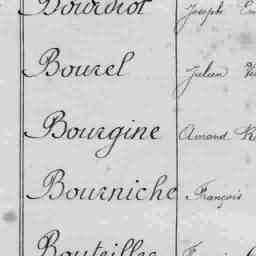 Bourdiol Joseph
Bourel Julien
Bourgine Amand
Bourniche François
Bouteiller